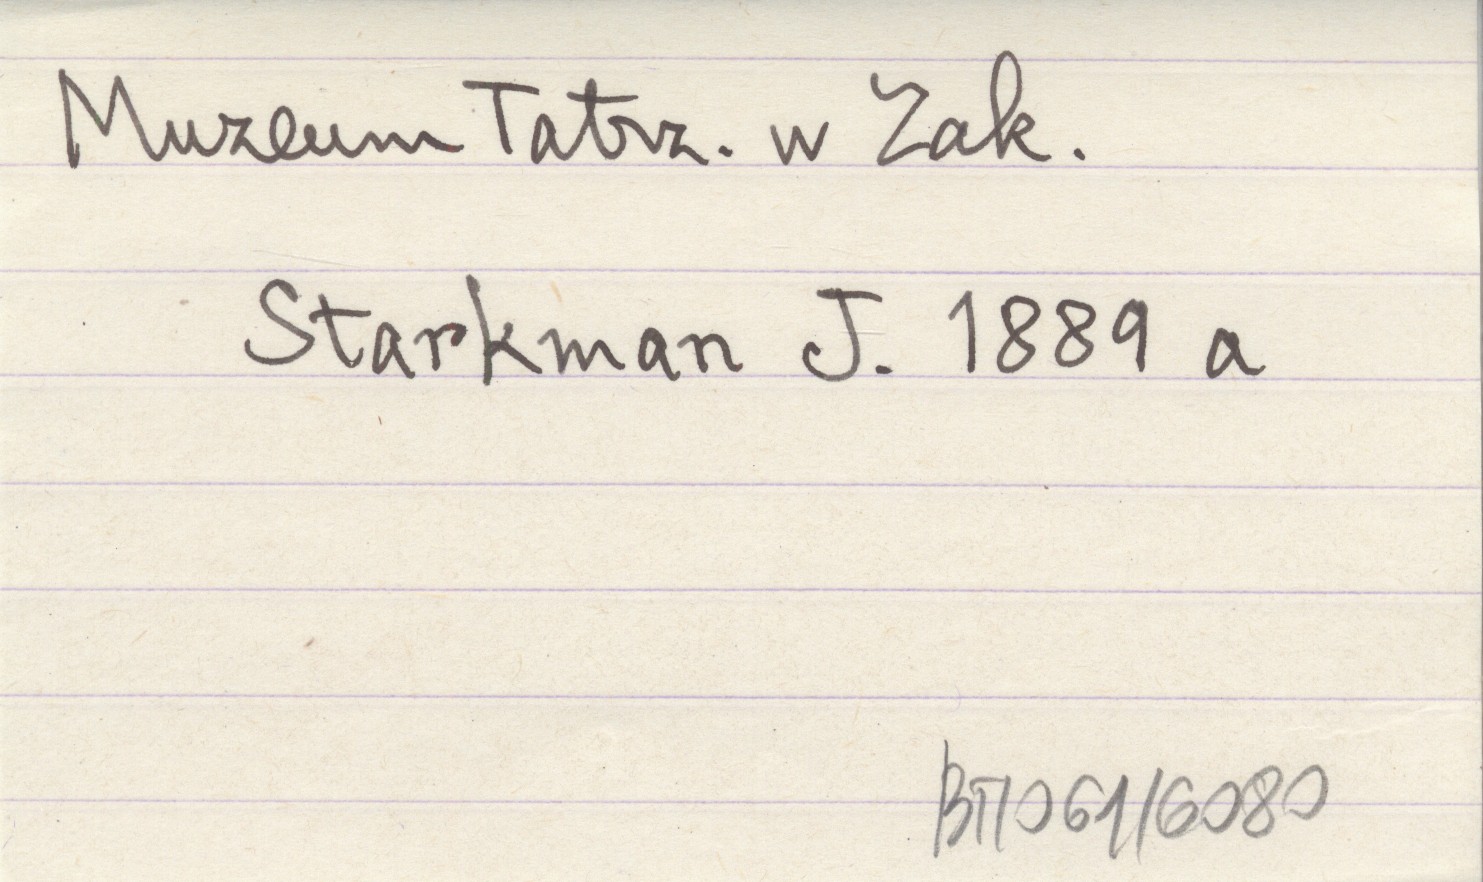 Muzeum Tatrz. w Zak.
Starkman J. 1889 a
BT/061/6080